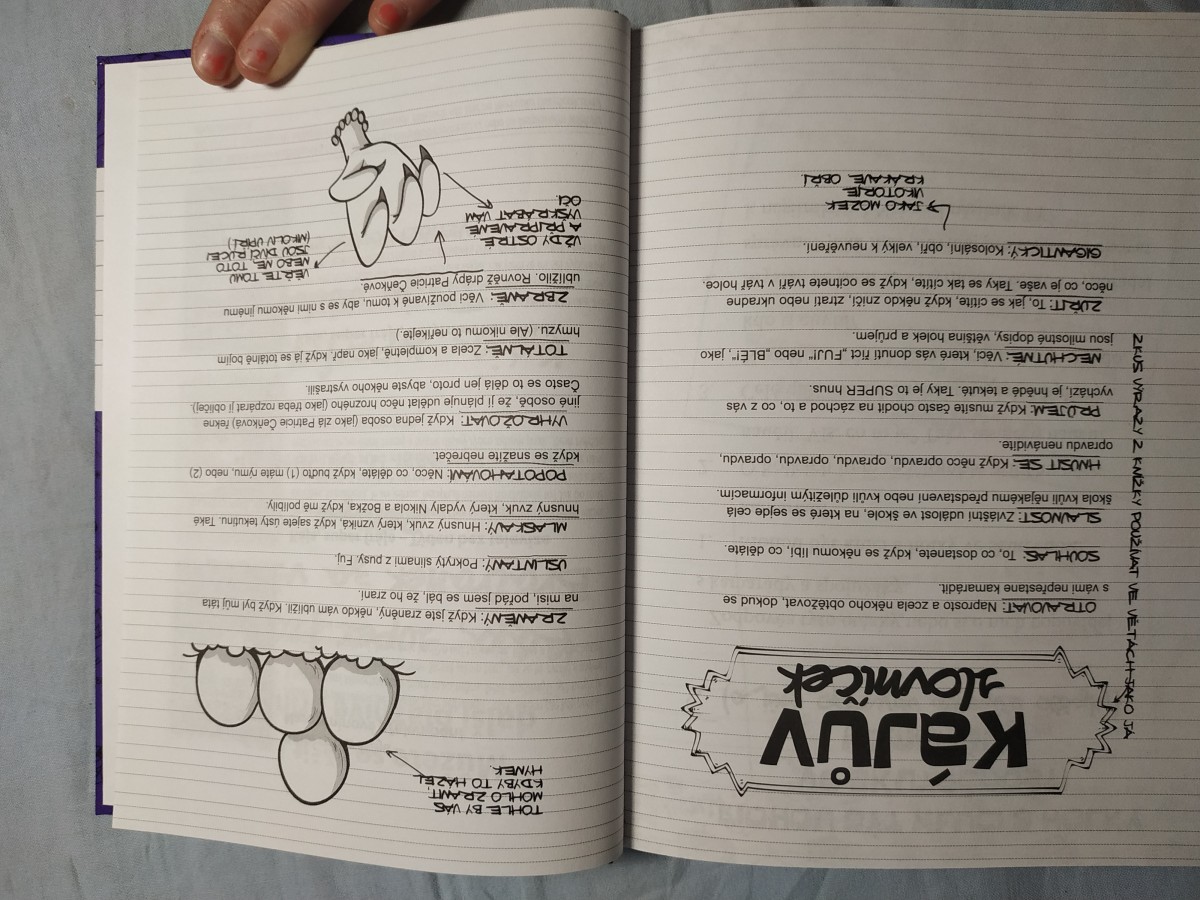 Kájův
slovníček
ZKUS VÝRAZY Z KNÍŽKY POUŽÍVAT VE VĚTÁCH JAKO JÁ
OTRAVOVAT: Naprosto a zcela někoho obtěžovat, dokud se
s vámi nepřestane kamarádit.
SOUHLAS: To, co dostanete, když se někomu líbí, co děláte.
SLAVNOST: Zvláštní událost ve škole, na které se sejde celá
škola kvůli nějakému představení nebo kvůli důležitým informacím.
HNUSIT SE: Když něco opravdu, opravdu, opravdu, opravdu,
opravdu nenávidíte.
PRŮJEM: Když musíte často chodit na záchod a to, co z vás
vychází, je hnědé a tekuté. Taky je to SUPER hnus.
NECHUTNÉ: Věci, které vás donutí říct „FUJ!" nebo „BLÉ!", jako
jsou milostné dopisy, většina holek a průjem.
ZUŘIT: To, jak se cítíte, když někdo zničí, ztratí nebo ukradne
něco, co je vaše. Taky se tak cítíte, když se ocitnete tváří v tvář holce.
GIGANTICKÝ: Kolosální, obří, velký k neuvěření.
JAKO MOZEK
VIKTORJE
KRÁKAVÉ OBŘÍ.
TOHLE BY VÁS
MOHLO ZRANIT,
KDYBY TO HÁZEL
HYNEK.
ZRANĚNÝ: Když jste zraněný, někdo vám ublížil. Když byl můj táta
na misi, pořád jsem se bál, že ho zraní.
USLINTANÝ: Pokrytý slinami z pusy. Fuj.
MLASKAVÝ: Hnusný zvuk, který vzniká, když sajete ústy tekutinu. Také
hnusný zvuk, který vydaly Nikola a Božka, když mě políbily.
POPOTAHOVÁNÍ: Něco, co děláte, když buďto (1) máte rýmu, nebo (2)
když se snažíte nebrečet.
VYHROŽOVAT: Když jedna osoba (jako zlá Patricie Čeňková) řekne
jiné osobě, že jí plánuje udělat něco hrozného (jako třeba rozpárat jí obličej).
Často se to dělá jen proto, abyste někoho vystrašili.
TOTÁLNĚ: Zcela a kompletně, jako např. když já se totálně bojím
hmyzu. (Ale nikomu to neříkejte.)
ZBRANĚ: Věci používané k tomu, aby se s nimi někomu jinému
ublížilo. Rovněž drápy Patricie Čeňkové.
VĚŘTE TOMU
NEBO NE, TOTO
JSOU DÍVČÍ RUCE!
(NIKOLIV UPÍŘÍ.)
VŽDY OSTRÉ
A PŘIPRAVENÉ
VYŠKRÁBAT VÁM
OČI.